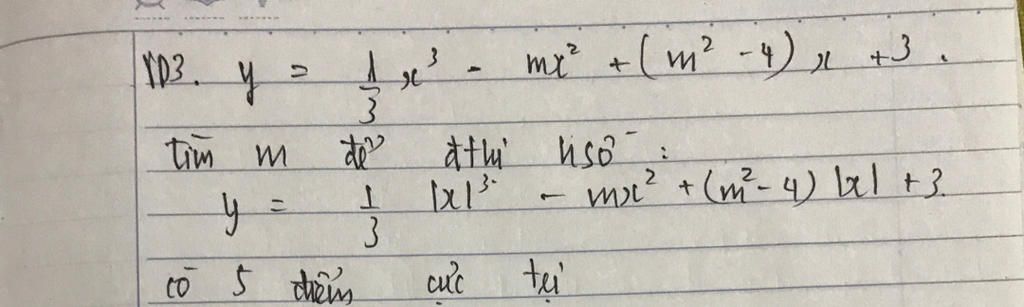 VD3. y = 1/3 x³ - mx² + (m² - 4) x + 3.
tìm m để đthị h số :
y = 1/3 |x|³ - mx² + (m² - 4) |x| + 3.
có 5 điểm cực trị